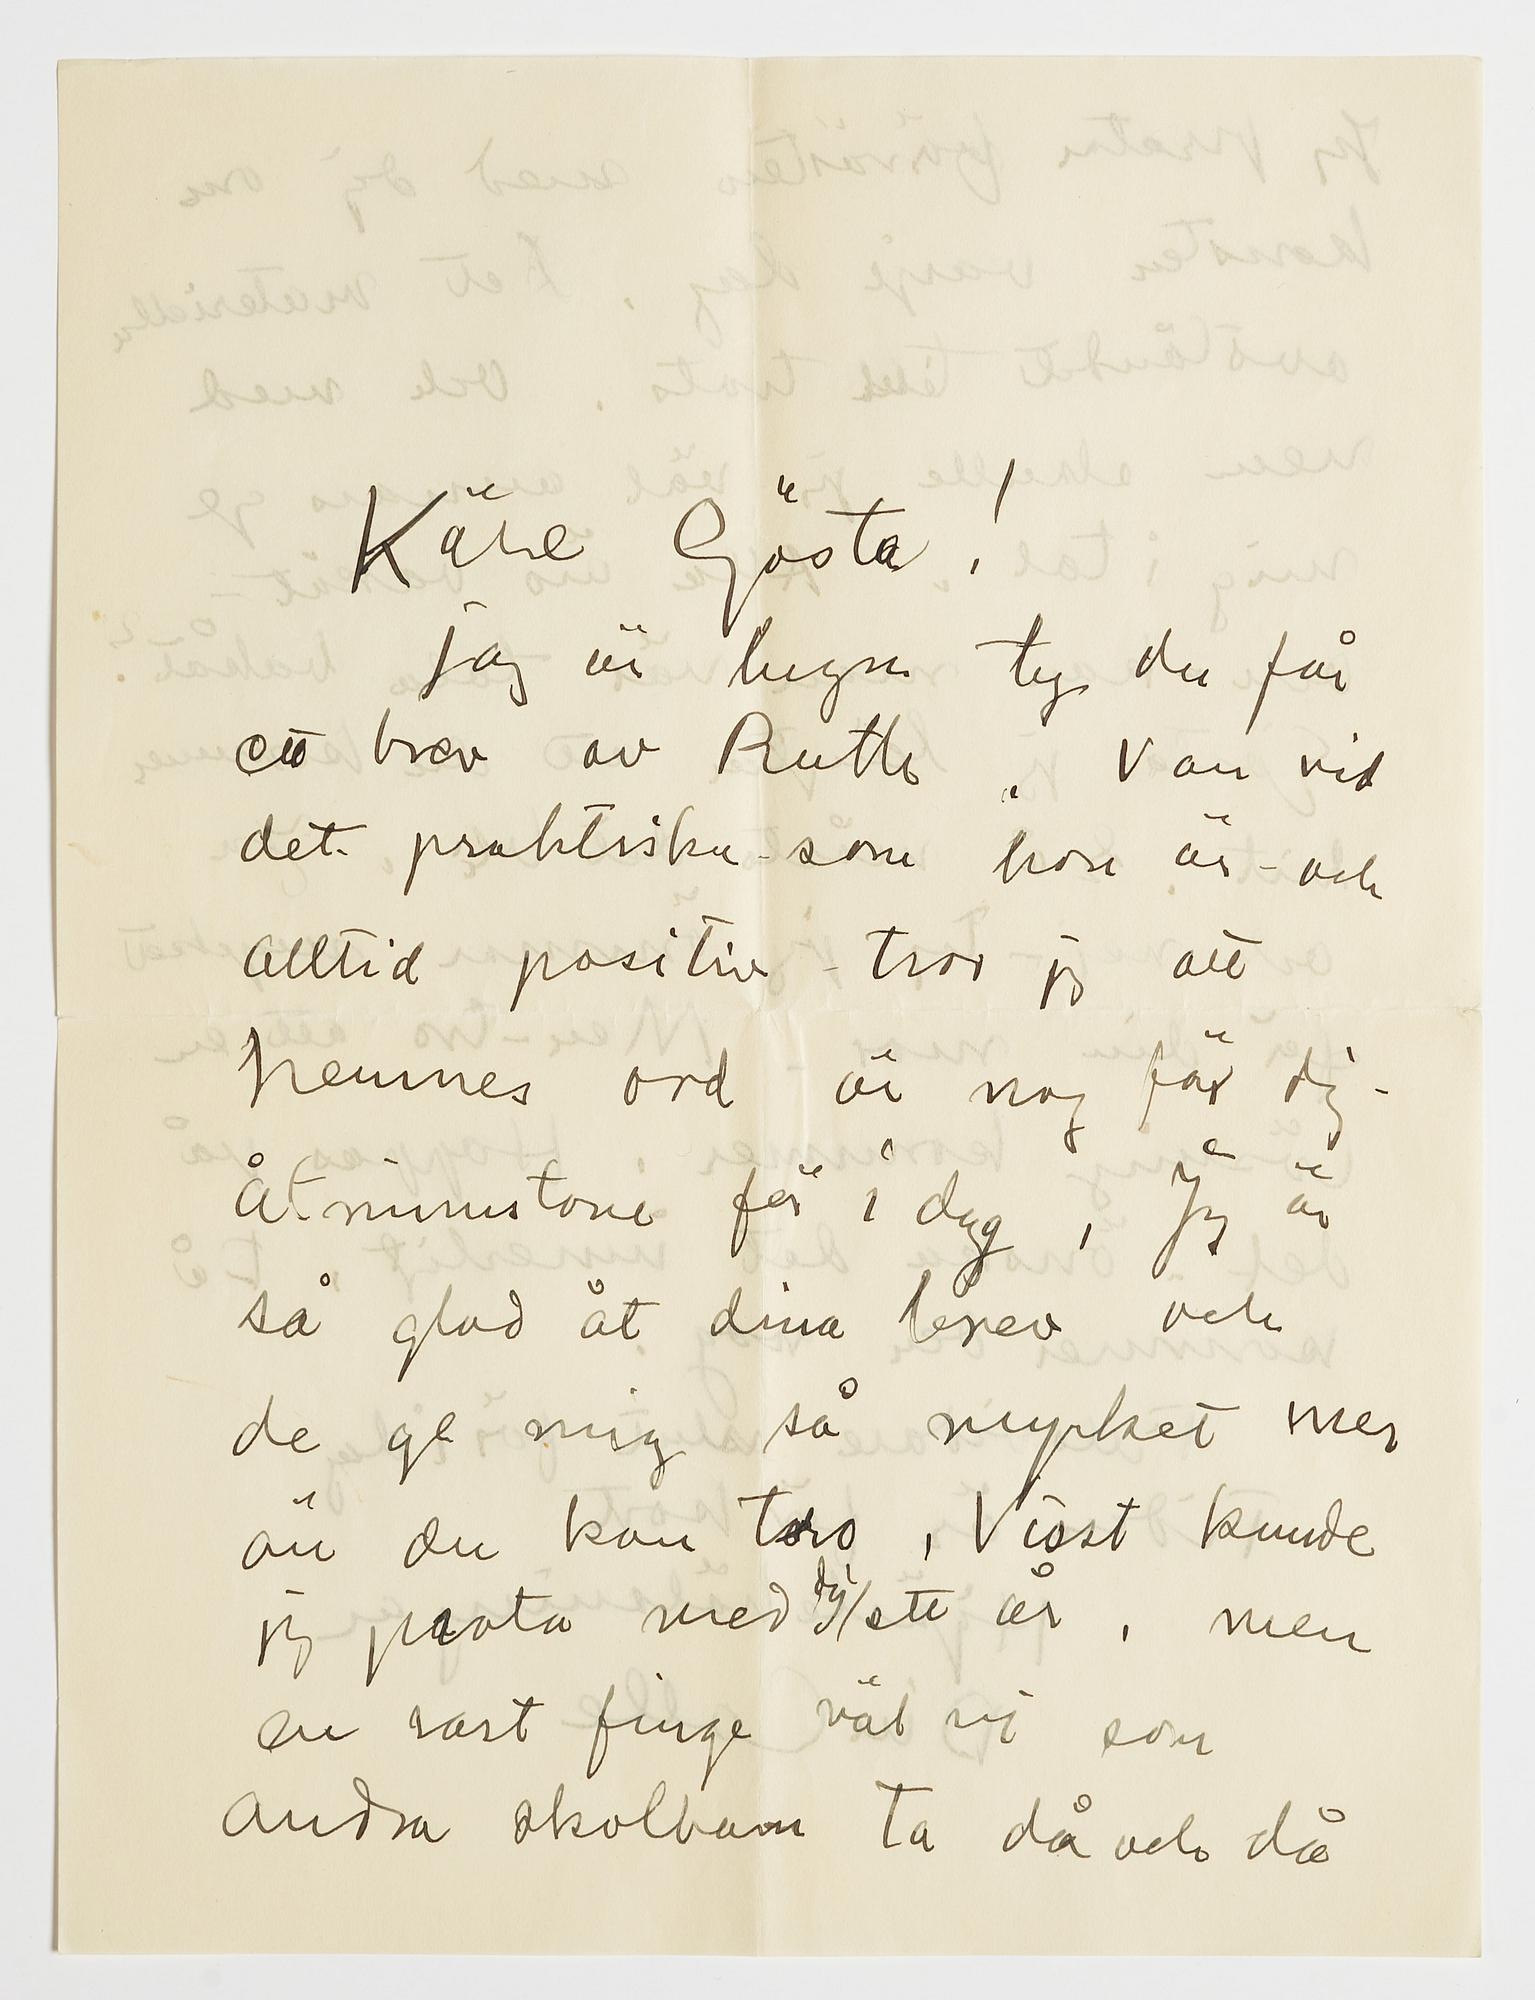 Käre Gösta!
jag är lugn ty du får
ett brev av Ruth. Van vid
det praktiska som hon är - och
alltid positiv - tror jg att
hennes ord är nog för dig -
Åtminstone för i dag. Jag är
så glad åt dina brev och
de ge mig så mycket mer
än du kan tro. Visst kunde
jg prata med dig/ett år, men
en rast finge väl vi som
andra skolbarn ta då och då